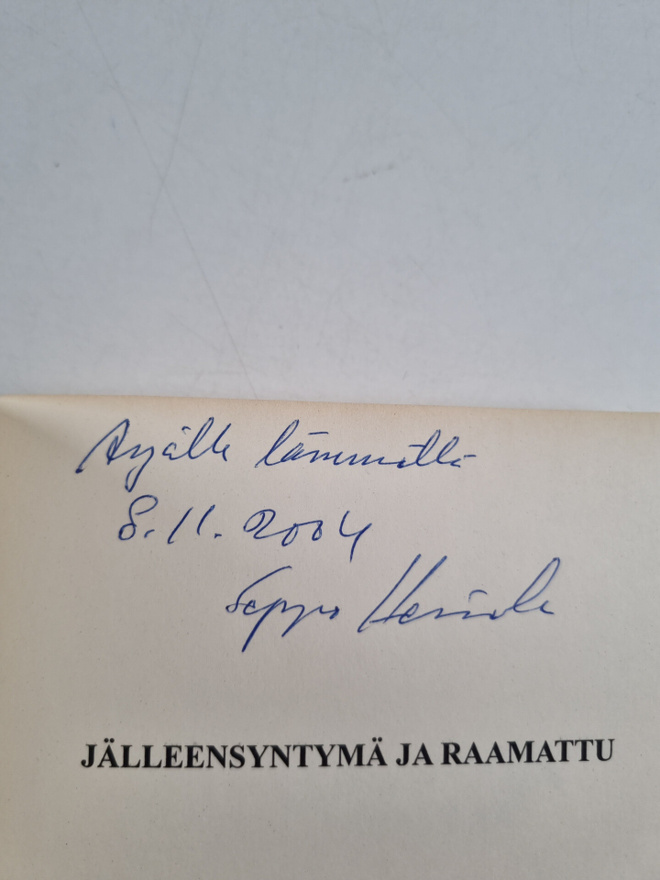 Arjalle lämmöllä
8.11.2004
Seppo
JÄLLEENSYNTYMÄ JA RAAMATTU